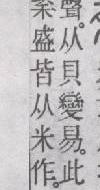 聲。从貝變易。此
粢盛皆从米作。